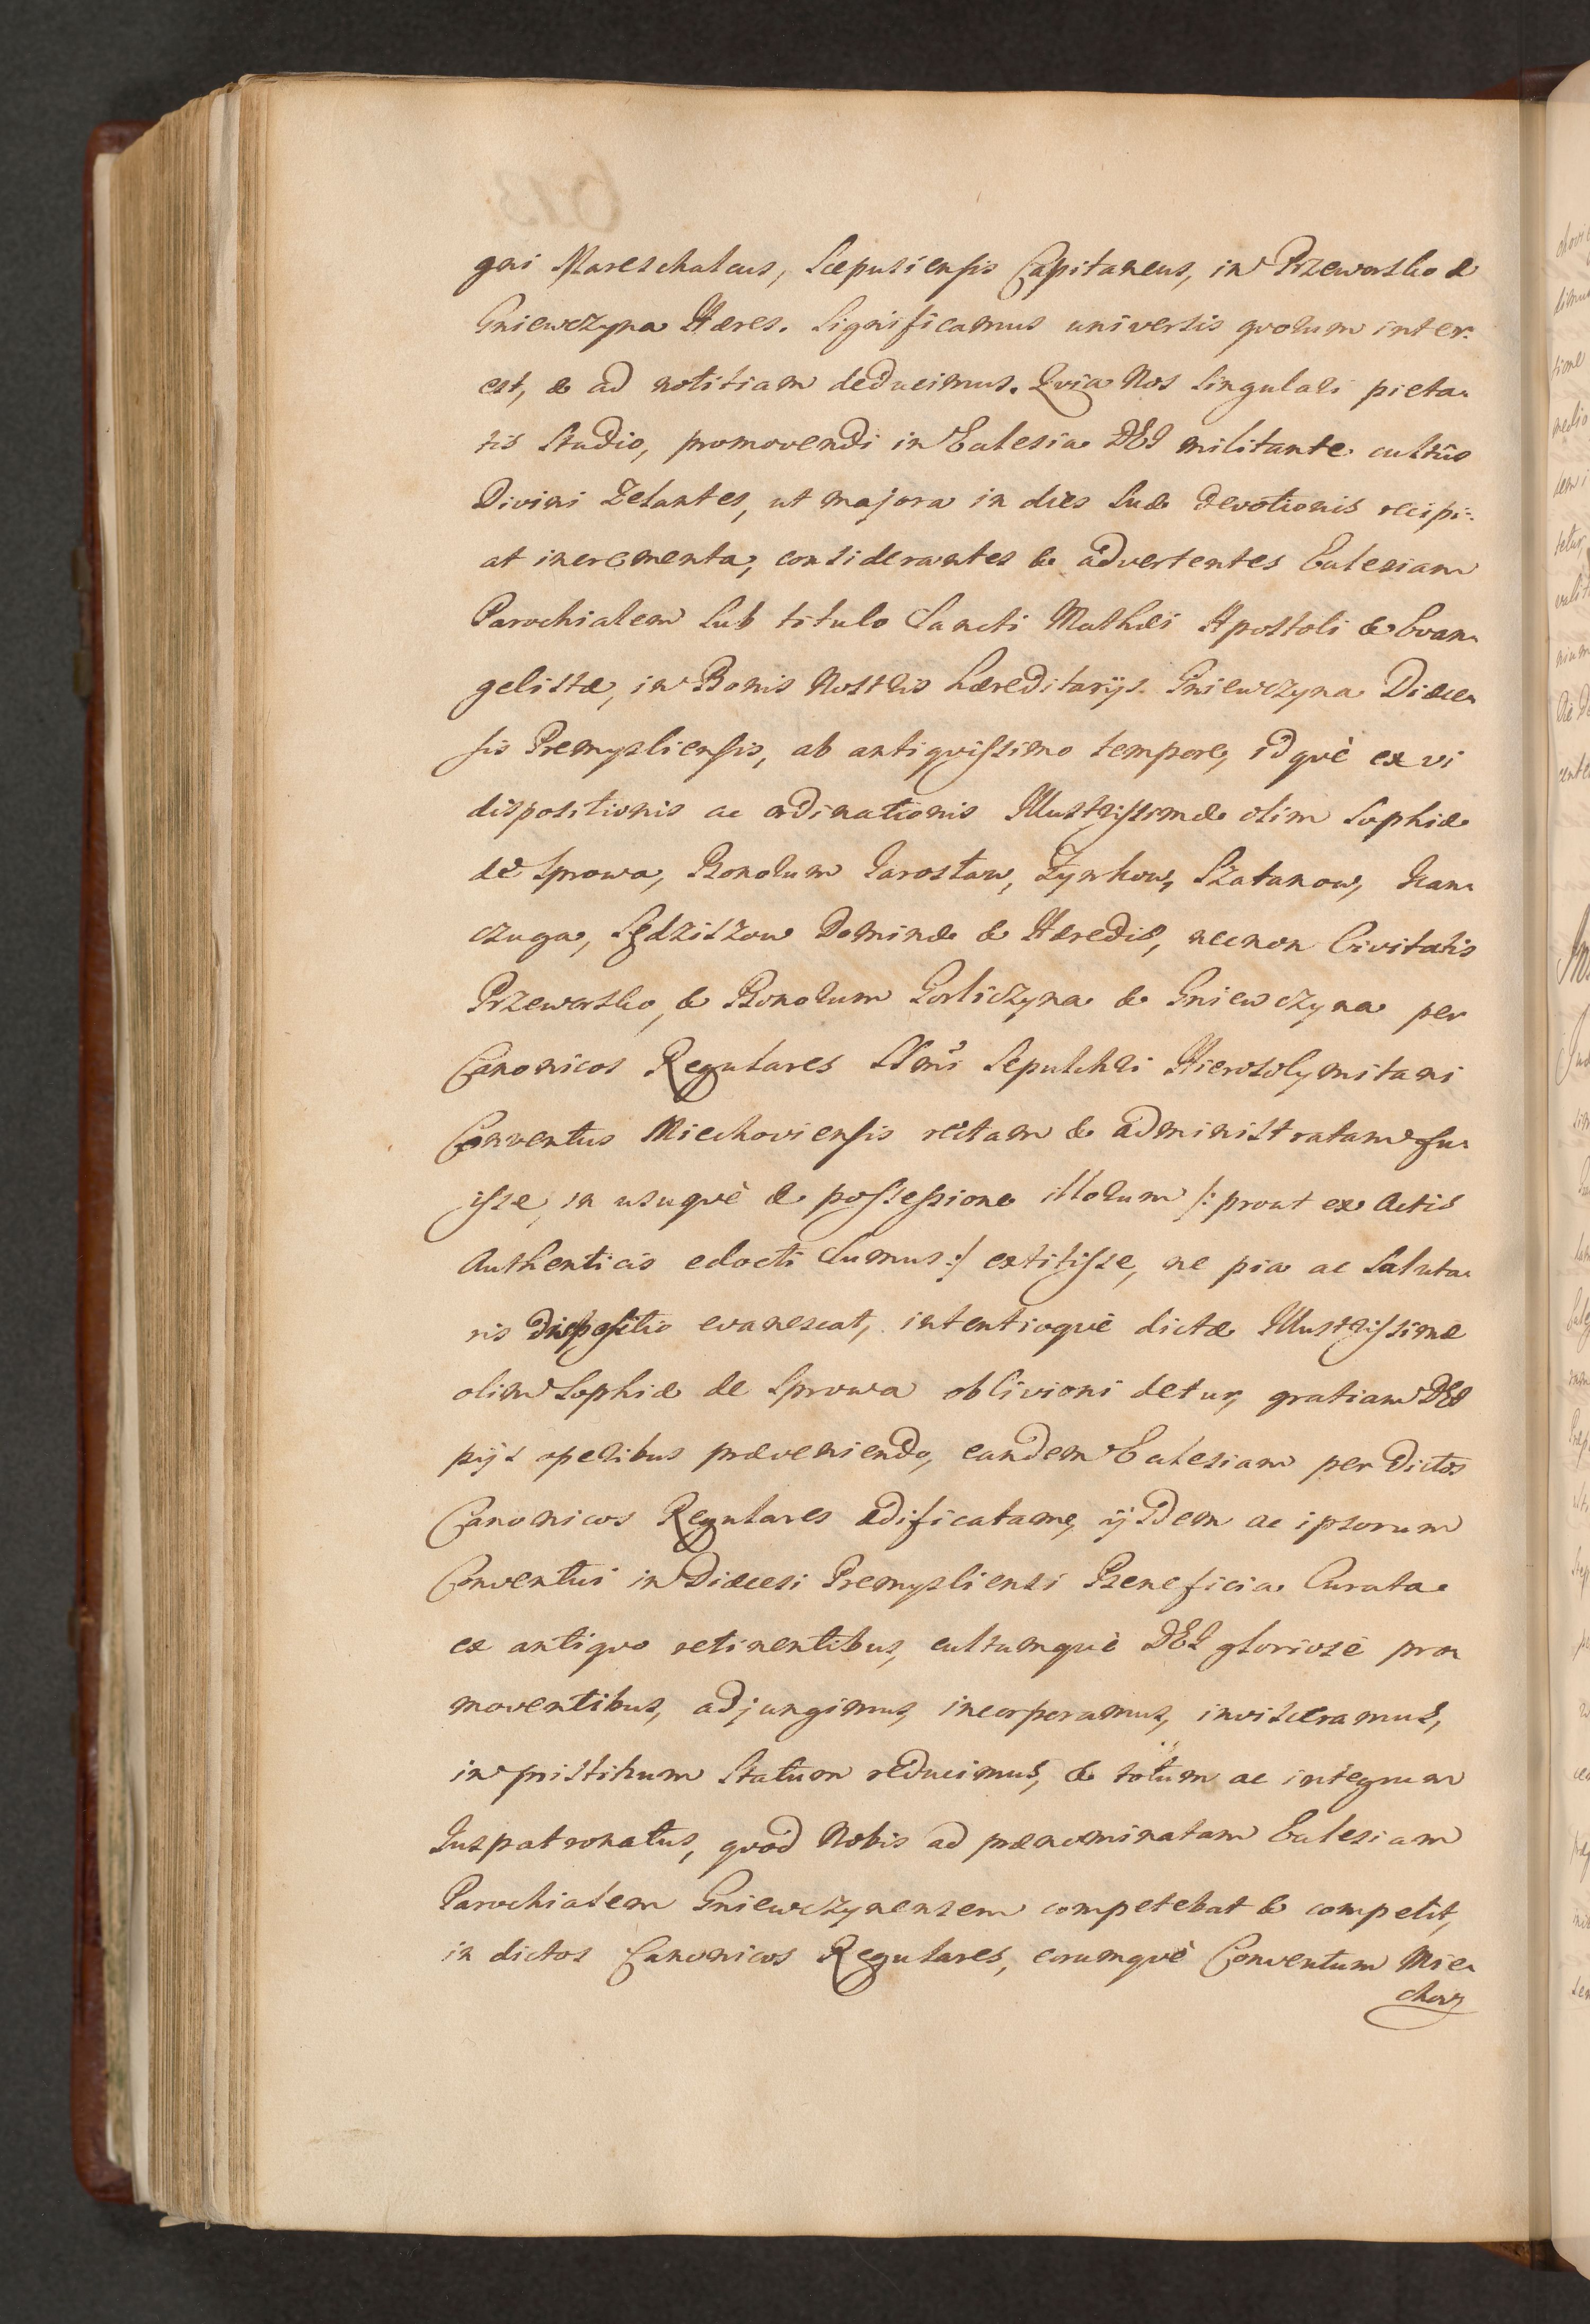 gni Mareschalcus, Scepusiensis Capitaneus, in Przeworsko &
Gniewczyna Hæres. Significamus universis quorum inter-
est, & ad notitiam deducimus. Quia Nos singulari pieta-
tis studio, promovendi in Ecclesia DEI militante cultûs
Divini Zelantes, ut majora in dies suæ devotionis recipi-
at incrementa, considerantes & advertentes Ecclesiam
Parochialem sub titulo Sancti Mathæi Apostoli & Evan-
gelistæ, in Bonis Nostris hæreditarijs Gniewczyna Diæce-
sis Premysliensis, ab antiquissimo tempore, idquè ex vi
dispositionis ac ordinationis Illustrissimæ olim Sophiæ
de Sprowa, Bonorum Jarosław, Zynkow, Szatanow, Kan-
czuga, Sędziszow Dominæ & Hæredis, necnon Civitatis
Przeworsko, & Bonorum Gorliczyna & Gniewczyna per
Canonicos Regulares SSmi Sepulchri Hierosolymitani
Conventus Miechoviensis rectam & administratam fu-
isse, in usuquè & possessione illorum /: prout ex Actis
Authenticis edocti sumus :/ extitisse, ne pia ac saluta-
ris dispositio evanescat, intentioquè dictæ Illustrissimæ
olim Sophiæ de Sprowa oblivioni detur, gratiam DEI
pijs operibus præveniendo, eandem Ecclesiam per dictos
Canonicos Regulares ædificatam, ijsdem ac ipsorum
Conventui in Diæcesi Premysliensi Beneficia Curata
ex antiquo retinentibus, cultumquè DEI gloriosè pro-
moventibus, adjungimus, incorporamus, invisceramus,
in pristinum statum reducimus, & totum ac integrum
Juspatronatus, quod Nobis ad prænominatam Ecclesiam
Parochialem Gniewczynensem competebat & competit,
in dictos Canonicos Regulares, eorumquè Conventum Mie-
chov